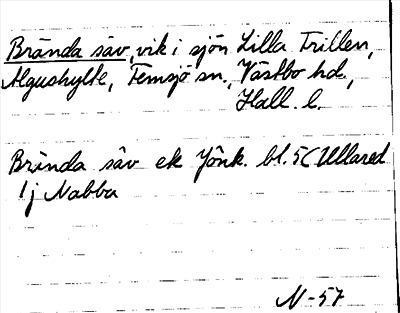 Brända säv, vik i sjön Lilla Trillen,
Älgushylte, Femsjö sn., Västbo hd.,
Hall. l.
Brända säv ek Jönk. bl. 5 (Ullared
1j Nabba
N-57